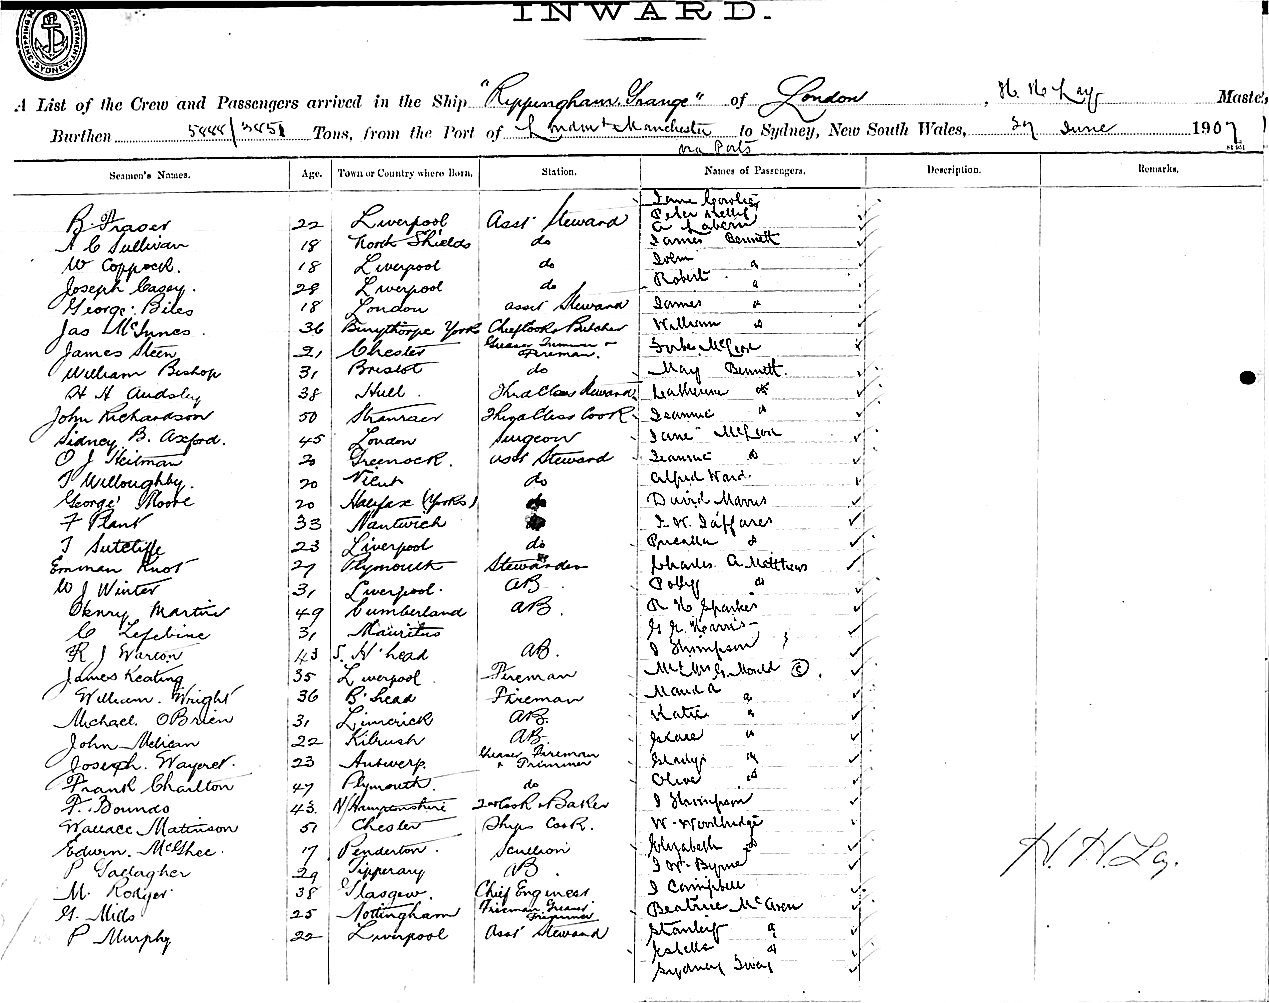 INWARD.
A List of the Crew and Passengers arrived in the Ship "Rippingham Grange" of London, Master,
Burthen Tons, from the Port of London & Manchester to Sydney, New South Wales, June 1907
via Ports
Seamen's Names. Age. Town or Country where Born. Station. Names of Passengers. Description. Remarks.
R. Fraser 22 Liverpool Asst Steward Peter
A C Sullivan 18 North Shields do James Bennett
W Coppock. 18 Liverpool do John "
Joseph Casey. 28 Liverpool do Robert "
George Biles 18 London asst Steward James "
Jas McInnes. 36 York Chief Cook & Butcher William "
James Steen 21 Chester Greaser Trimmer & Fireman. McLeod
William Bishop 31 Bristol do May Bennett.
H H Audsley 38 Hull. Third Class Steward Catherine "
John Richardson 50 Stranraer Third Class Cook Jeannie "
Sidney B. Axford. 45 London Surgeon Jane McLeod
O J Heitman 20 Greenock. asst Steward Jeannie "
T Willoughby. 20 do Alfred Ward.
George Moore 20 Halifax (Yorks) do David Morris
F Plant 33 Nantwich do
T Sutcliffe 23 Liverpool do "
Emman Knot 27 Plymouth Stewardess Charles A Matthews
W J Winter 31 Liverpool. AB Polly "
Henry Martin 49 Cumberland AB. R H Sparkes
C Lefebine 31 Mauritius Harris
R J Warton 43 S. H'head AB. J Thompson
James Keating 35 Liverpool Fireman Mr & Mrs G. Mould ©.
William. Wright 36 B'head Fireman Maud "
Michael OBrien 31 Limerick AB. Katie "
John Melican 22 Kilrush AB. "
Joseph. Waycret. 23 Antwerp. Greaser Fireman & Trimmer Gladys "
Frank Charlton 47 Plymouth. do Olive "
F. Bounds 43. N/Hamptonshire 2nd Cook & Baker J Thompson
Wallace Matinson 51 Chester Ships Cook. W. Woolbridge
Edwin. McGhee. 17 Penderton. Scullion Elizabeth "
P Gallagher 29 Tipperary AB. J W. Byrne
M. Rodger 38 Glasgow. Chief Engineer J Campbell
G. Mills 25 Nottingham Fireman Greaser Trimmer Beatrice McAven
P Murphy 22 Liverpool Asst Steward Stanley "
"
Sydney
H. H Lay.